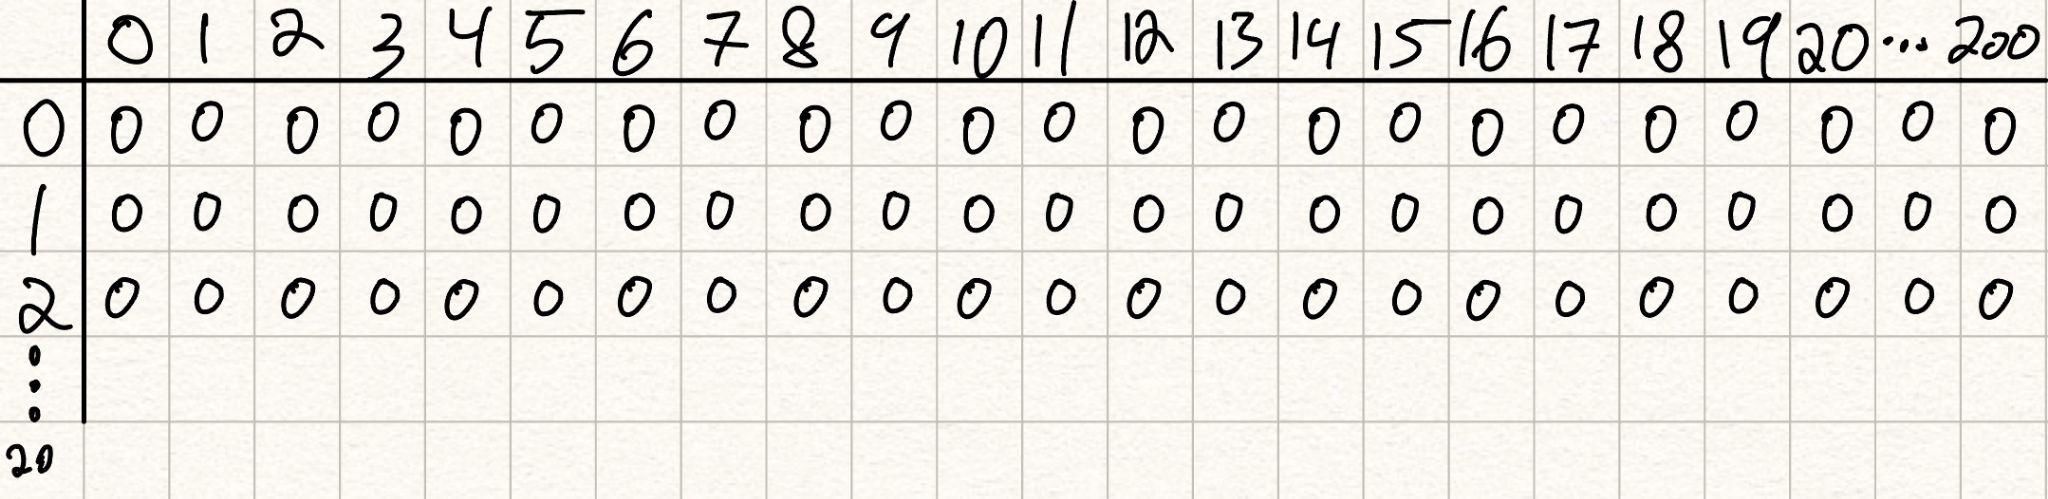 0 1 2 3 4 5 6 7 8 9 10 11 12 13 14 15 16 17 18 19 20 ... 200
0 0 0 0 0 0 0 0 0 0 0 0 0 0 0 0 0 0 0 0 0 0 0 0
1 0 0 0 0 0 0 0 0 0 0 0 0 0 0 0 0 0 0 0 0 0 0 0
2 0 0 0 0 0 0 0 0 0 0 0 0 0 0 0 0 0 0 0 0 0 0 0
⋮
20